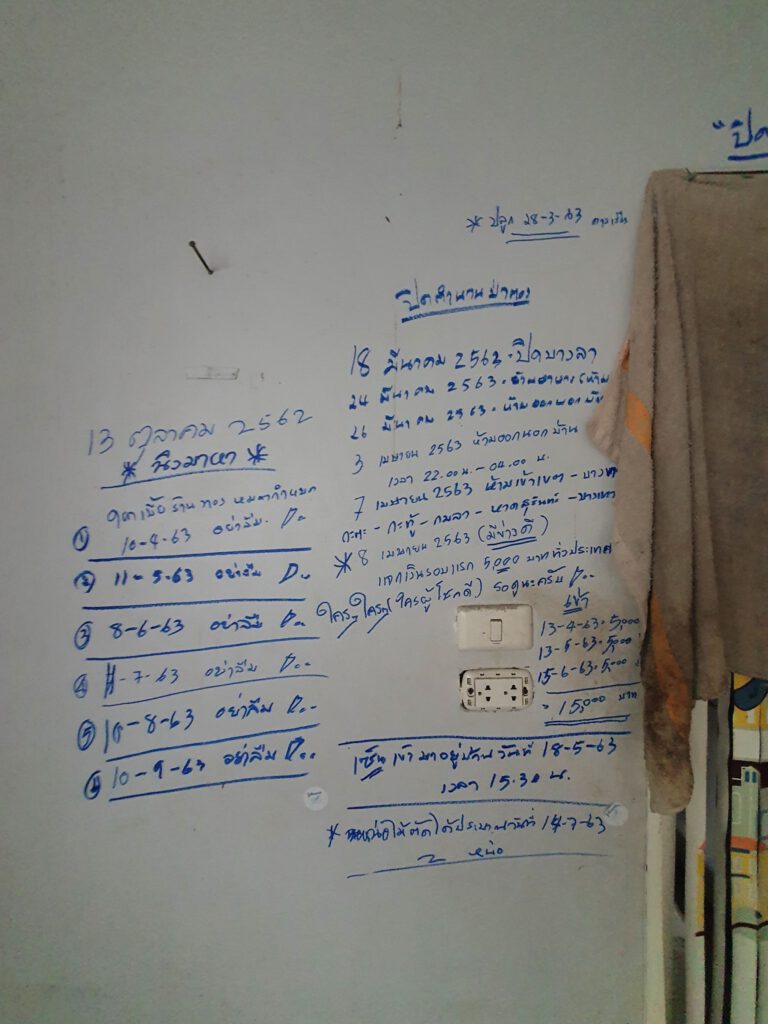 "ปิด
* ปลูก 28-3-63
ปิดตำนานป่าตอง
18 มีนาคม 2563 • ปิดบางลา
24 มีนาคม 2563 •
26 มีนาคม 2563 • ห้ามออกนอก
3 เมษายน 2563 ห้ามออกนอกบ้าน
เวลา 22.00 น. - 04.00 น.
7 เมษายน 2563 ห้ามเข้าเขต - บางเทา
กะตะ - กะทู้ - กมลา - หาดสุรินทร์ - บางเทา
* 8 เมษายน 2563 (มีข่าวดี)
แจกเงินรอบแรก 5,000 บาท ทั่วประเทศ
ใครๆ (ใครผู้โชคดี) รอดูนะครับ
เข้า
13-4-63 • 5,000
13-5-63 • 5,000
15-6-63 • 5,000
= 15,000 บาท
เข้ามาอยู่บ้าน วันที่ 18-5-63
เวลา 15.30 น.
* หน่อไม้ตัดได้ประมาณวันที่ 14-7-63
2 หน่อ
13 ตุลาคม 2562
* นิวมาหา *
① ร้านทอง
10-4-63 อย่าลืม
② 11-5-63 อย่าลืม
③ 8-6-63 อย่าลืม
④ -7-63 อย่าลืม
⑤ 10-8-63 อย่าลืม
⑥ 10-9-63 อย่าลืม